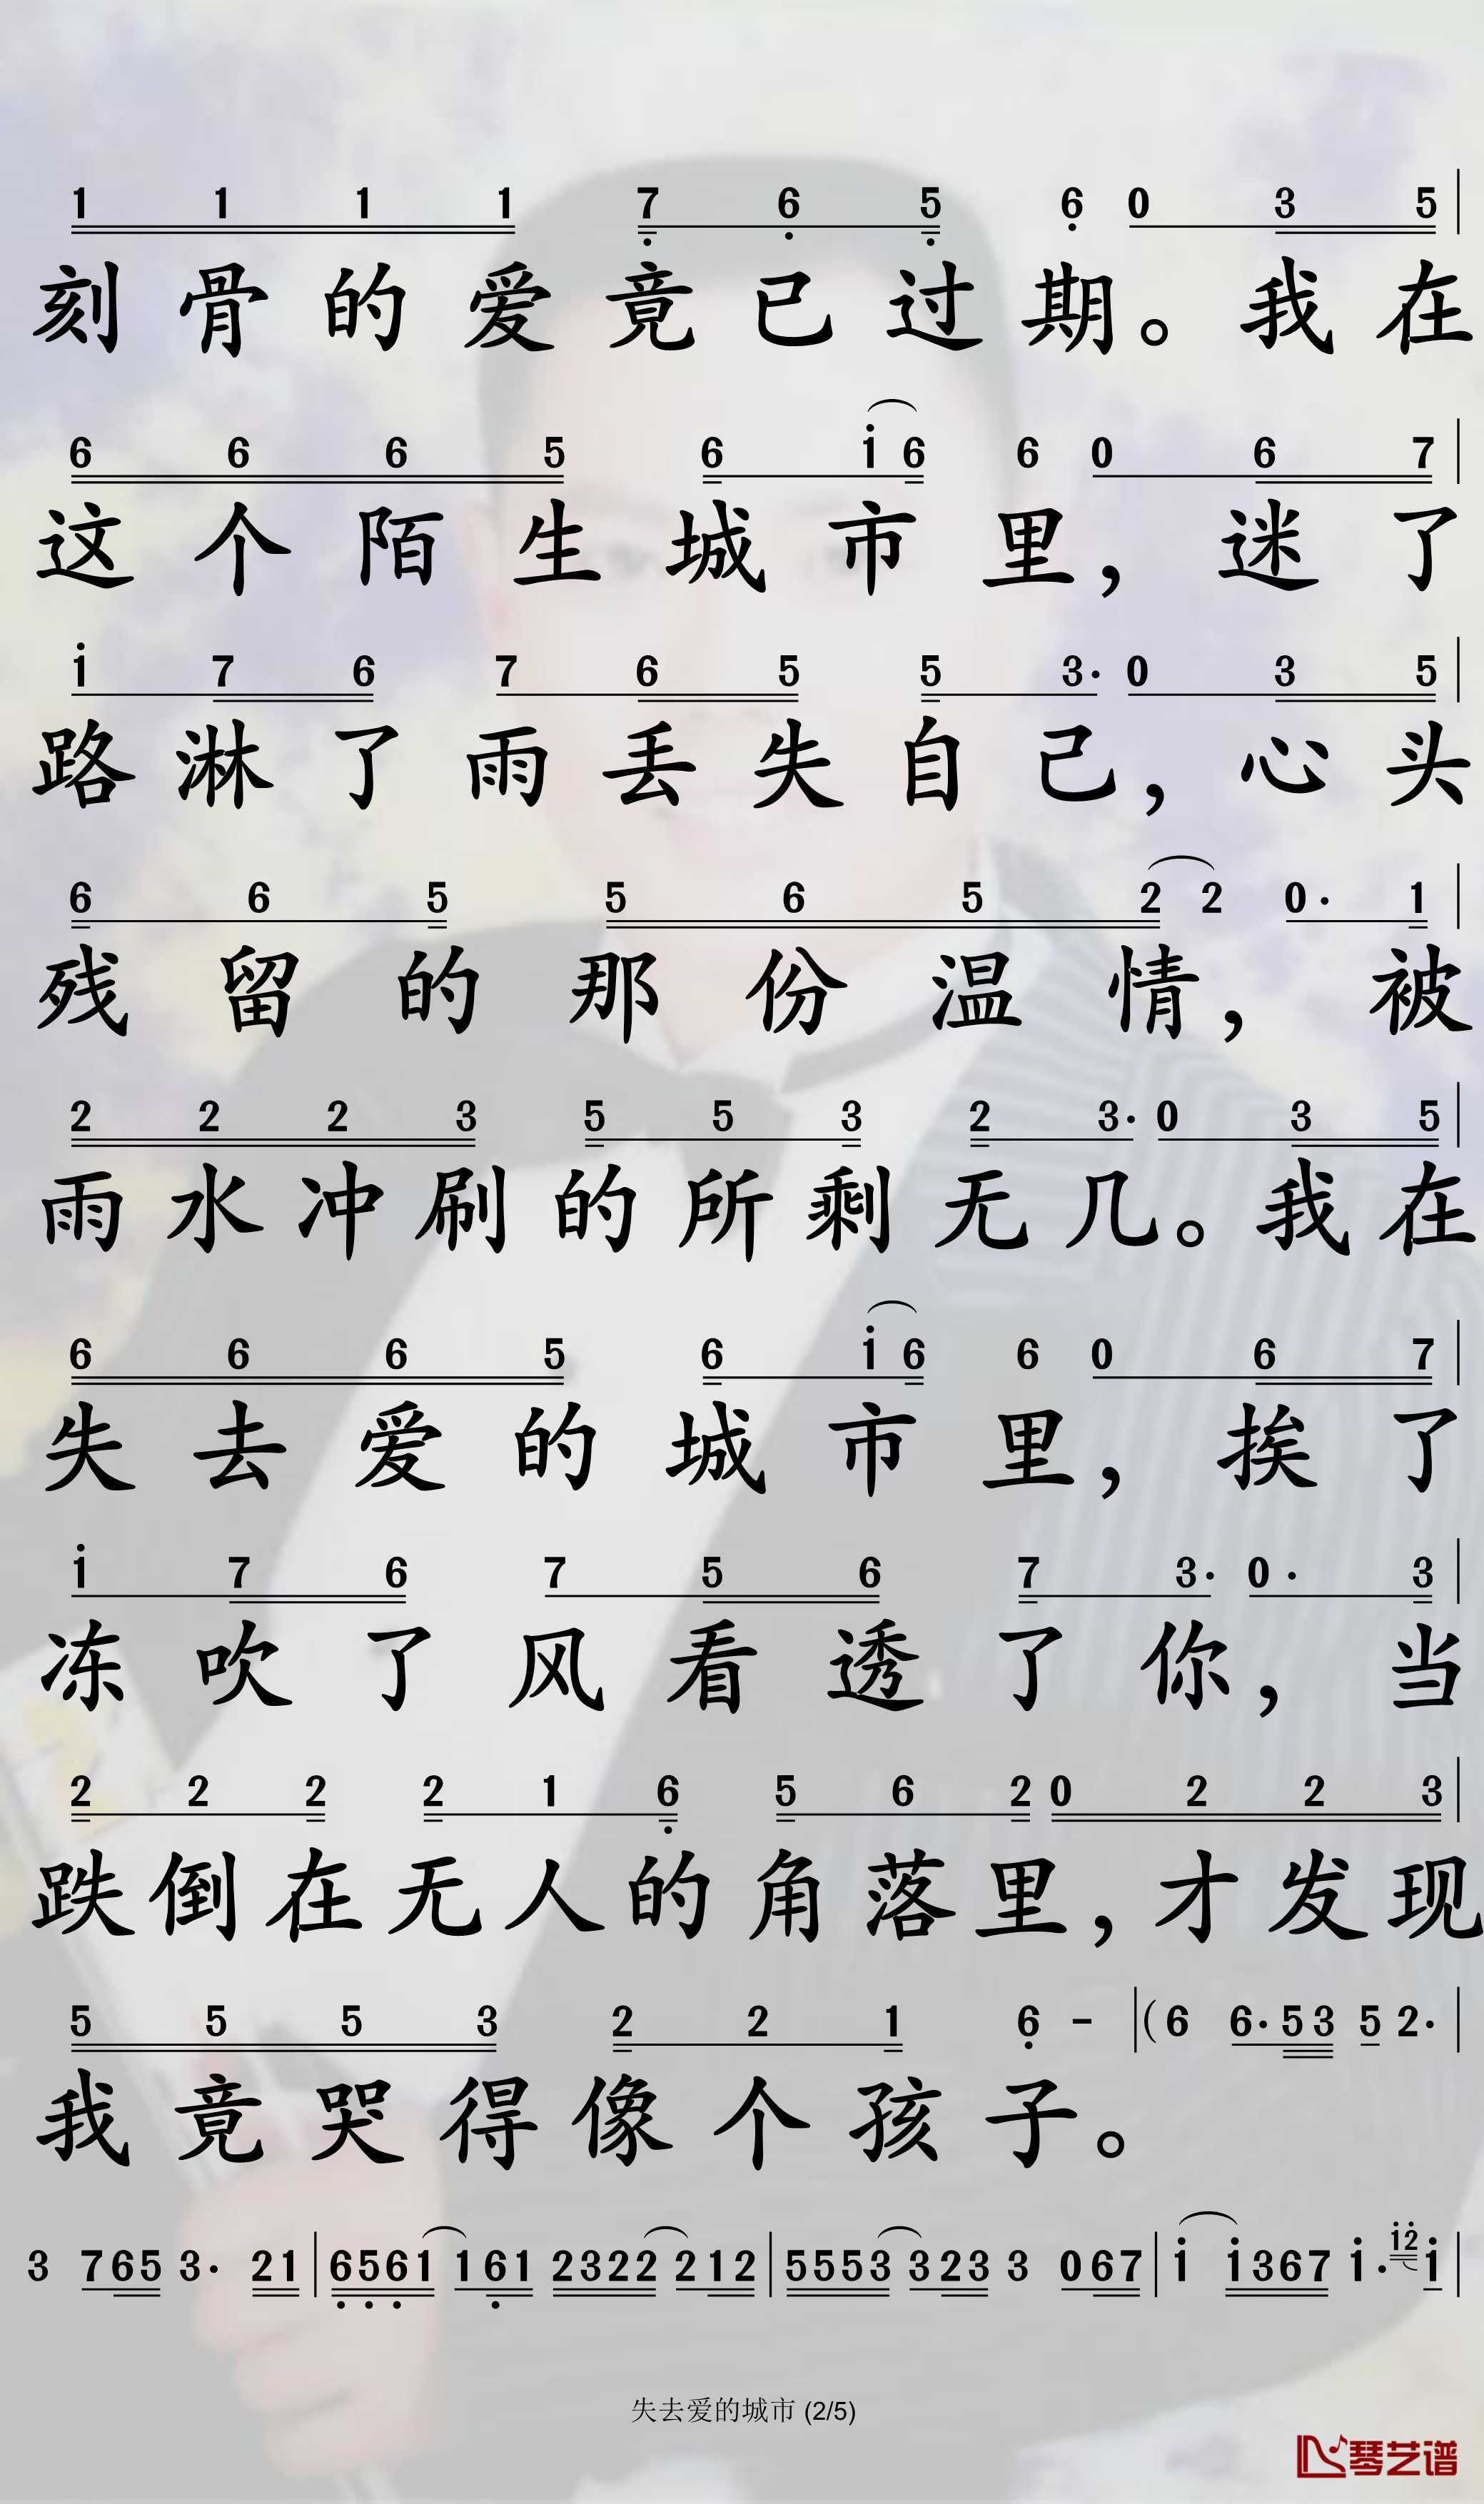 1 1 1 1 7̣ 6̣ 5̣ 6̣ 0 3 5 |
刻骨的爱竟已过期。我在
6 6 6 5 6 i 6 6 0 6 7 |
这个陌生城市里，迷了
i 7 6 7 6 5 5 3· 0 3 5 |
路淋了雨丢失自己，心头
6 6 5 5 6 5 2 2 0· 1 |
残留的那份温情，被
2 2 2 3 5 5 3 2 3· 0 3 5 |
雨水冲刷的所剩无几。我在
6 6 6 5 6 i 6 6 0 6 7 |
失去爱的城市里，挨了
i 7 6 7 5 6 7 3· 0· 3 |
冻吹了风看透了你，当
2 2 2 2 1 6̣ 5 6 2 0 2 2 3 |
跌倒在无人的角落里，才发现
5 5 5 3 2 2 1 6̣ - |( 6 6· 5 3 5 2· |
我竟哭得像个孩子。
3 7 6 5 3· 2 1 | 6̣ 5̣ 6̣ 1 1 6̣ 1 2 3 2 2 2 1 2 | 5 5 5 3 3 2 3 3 0 6 7 | i i 3 6 7 i· i 2̇ i |
失去爱的城市 (2/5)
琴艺谱